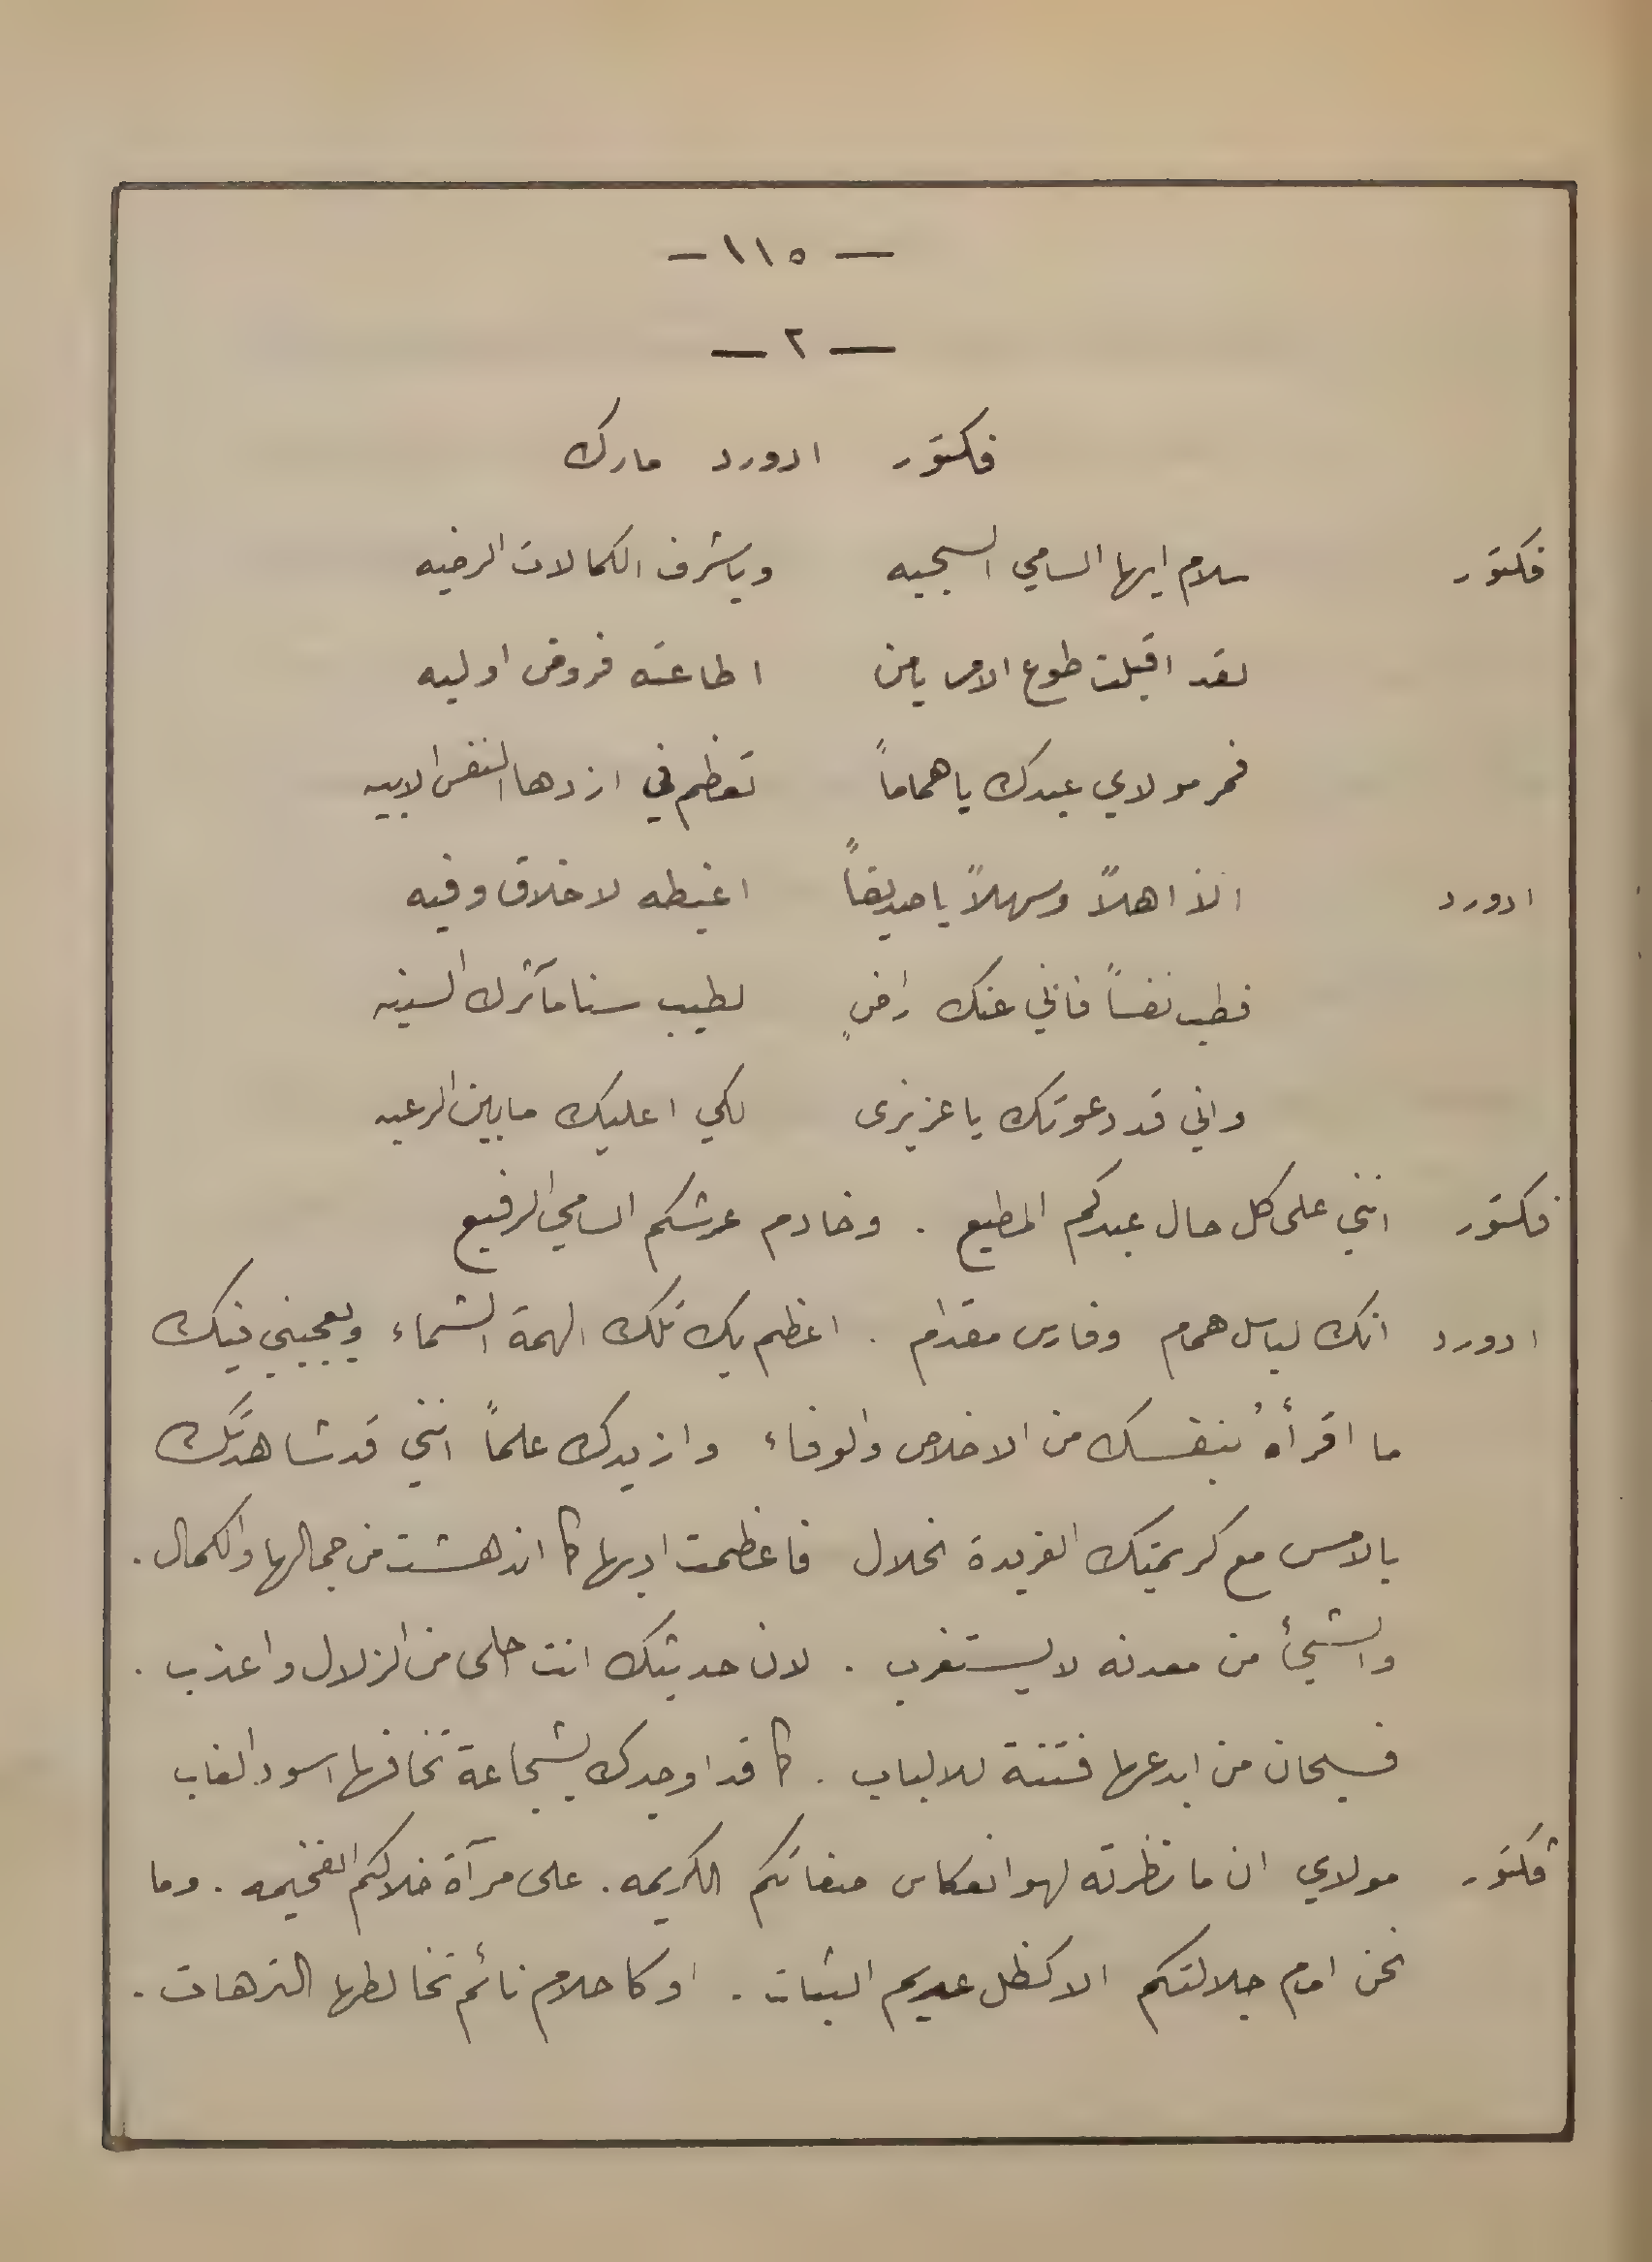 — ١١٥ —
— ٢ —
فكتور ادورد مارك
فكتور سلام ايها السامي السجيه وياشرف الكمالات الرضيه
لقد اقبلت طوع الامر يامن اطاعته فروض اوليه
فمر مولاي عبدك ياهماماً تعظم في ازدها النفس الابيه
ادورد اهلاً وسهلاً ياصديقاً اغبطه لاخلاق وفيه
فطب نفساً فاني عنك راضٍ لطيب سنا مآثرك السنيه
واني قد دعوتك ياعزيزى لكي اعليك مابين الرعيه
فكتور انني على كل حال عبدكم المطيع . وخادم عرشكم السامي الرفيع
ادورد انك لباسل همام وفارس مقدام . اعظم بك تلك الهمة الشماء ويعجبني فيك
ما اقرأهُ بنفسك من الاخلاص والوفاء وازيدك علماً انني قد شاهدتك
بالامس مع كريمتك الفريدة الخلال فاعظمت ادبها كما اندهشت من جمالها والكمال .
والشيئ من معدنه لايستغرب . لان حديثك انت احلى من الزلال واعذب .
فسبحان من ابدعها فتنة للالباب . كما قد اوجدك بشجاعة تخافها اسود الغاب
فكتور مولاي ان مانظرته لهو انعكاس صفاتكم الكريمه . على مرآة خلالكم الفخيمه . وما
نحن امام جلالتكم الا كظل عديم الثبات . او كاحلام نائم تخالطها الترهات .